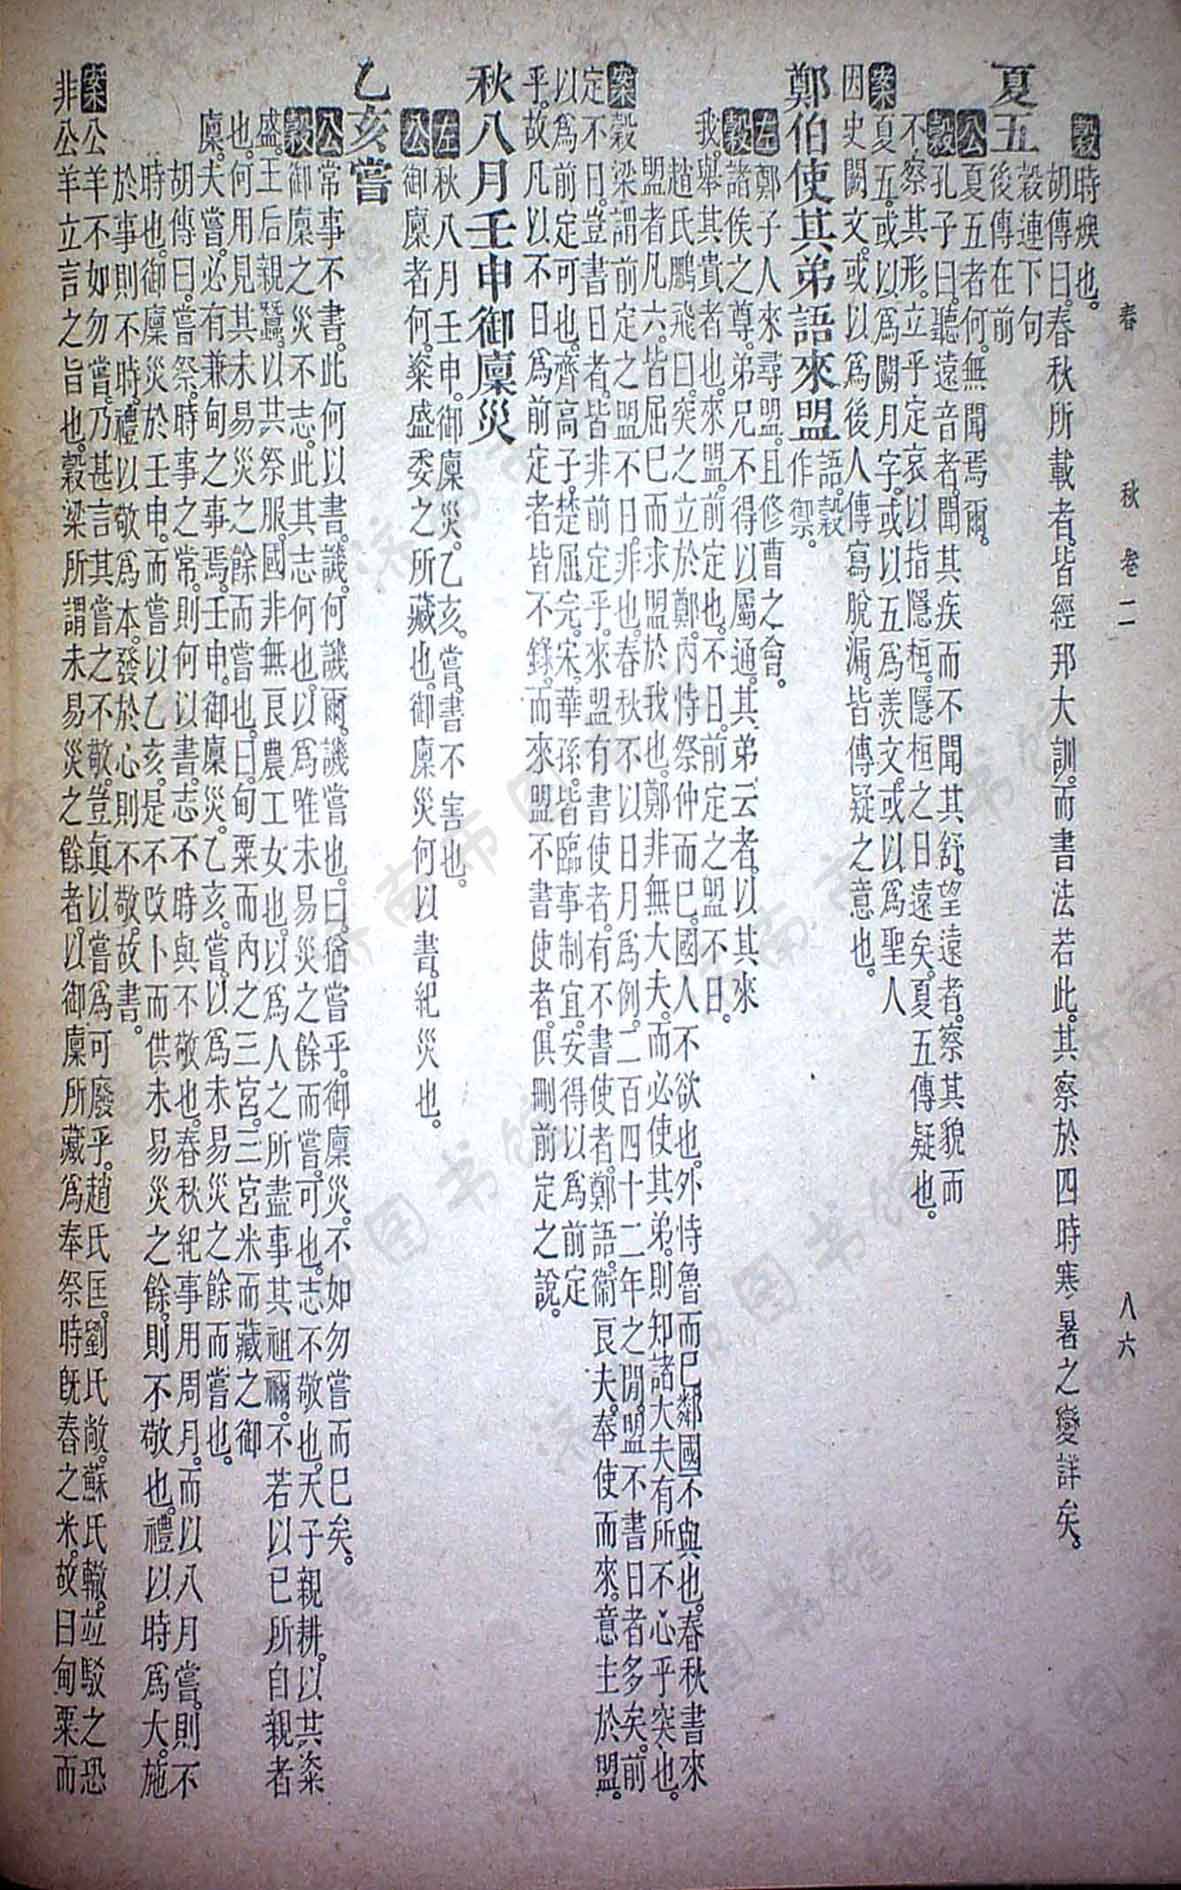 春秋 卷二 八六
穀時燠也。
胡傳曰。春秋所載者。皆經邦大訓。而書法若此。其察於四時寒暑之變詳矣。
夏五
穀連下句
後傳在前
公夏五者何。無聞焉爾。
穀孔子曰。聽遠音者。聞其疾而不聞其舒。望遠者。察其貌而
不察其形。立乎定哀。以指隱桓。隱桓之日遠矣。夏五傳疑也。
案夏五。或以爲闕月字。或以五爲羨文。或以爲聖人
因史闕文。或以爲後人傳寫脫漏。皆傳疑之意也。
鄭伯使其弟語來盟
語。穀
作禦。
左鄭子人來尋盟。且修曹之會。
穀諸侯之尊。弟兄不得以屬通。其弟云者。以其來
我。舉其貴者也。來盟。前定也。不日。前定之盟不日。
趙氏鵬飛曰。突之立於鄭。內恃祭仲而已。國人不欲也。外恃魯而已。鄰國不與也。春秋書來
盟者凡六。皆屈己而求盟於我也。鄭非無大夫。而必使其弟。則知諸大夫有所不心乎突也。
案穀梁謂前定之盟不日。非也。春秋不以日月爲例。二百四十二年之閒。盟不書日者多矣。前
定不日。豈書日者。皆非前定乎。來盟有書使者。有不書使者。鄭語。衞良夫。奉使而來。意主於盟。
以爲前定可也。齊高子。楚屈完。宋華孫。皆臨事制宜。安得以爲前定
乎。故凡以不日爲前定者皆不錄。而來盟不書使者。俱刪前定之說。
秋八月壬申御廩災
左秋八月壬申。御廩災。乙亥。嘗。書不害也。
公御廩者何。粢盛委之所藏也。御廩災何以書。紀災也。
乙亥嘗
公常事不書。此何以書。譏。何譏爾。譏嘗也。曰。猶嘗乎。御廩災。不如勿嘗而已矣。
穀御廩之災不志。此其志何也。以爲唯未易災之餘而嘗。可也。志不敬也。天子親耕。以共粢
盛。王后親蠶。以共祭服。國非無良農工女也。以爲人之所盡事其祖禰。不若以己所自親者
也。何用見其未易災之餘而嘗也。曰。甸粟而內之三宮。三宮米而藏之御
廩。夫嘗。必有兼甸之事焉。壬申。御廩災。乙亥。嘗。以爲未易災之餘而嘗也。
胡傳曰。嘗祭。時事之常。則何以書。志不時與不敬也。春秋紀事用周月。而以八月嘗。則不
時也。御廩災於壬申。而嘗以乙亥。是不改卜而供未易災之餘。則不敬也。禮以時爲大。施
於事則不時。禮以敬爲本。發於心則不敬。故書。
案公羊不如勿嘗。乃甚言其嘗之不敬。豈眞以嘗爲可廢乎。趙氏匡。劉氏敞。蘇氏轍。竝駁之。恐
非公羊立言之旨也。穀梁所謂未易災之餘者。以御廩所藏爲奉祭時旣舂之米。故曰甸粟而